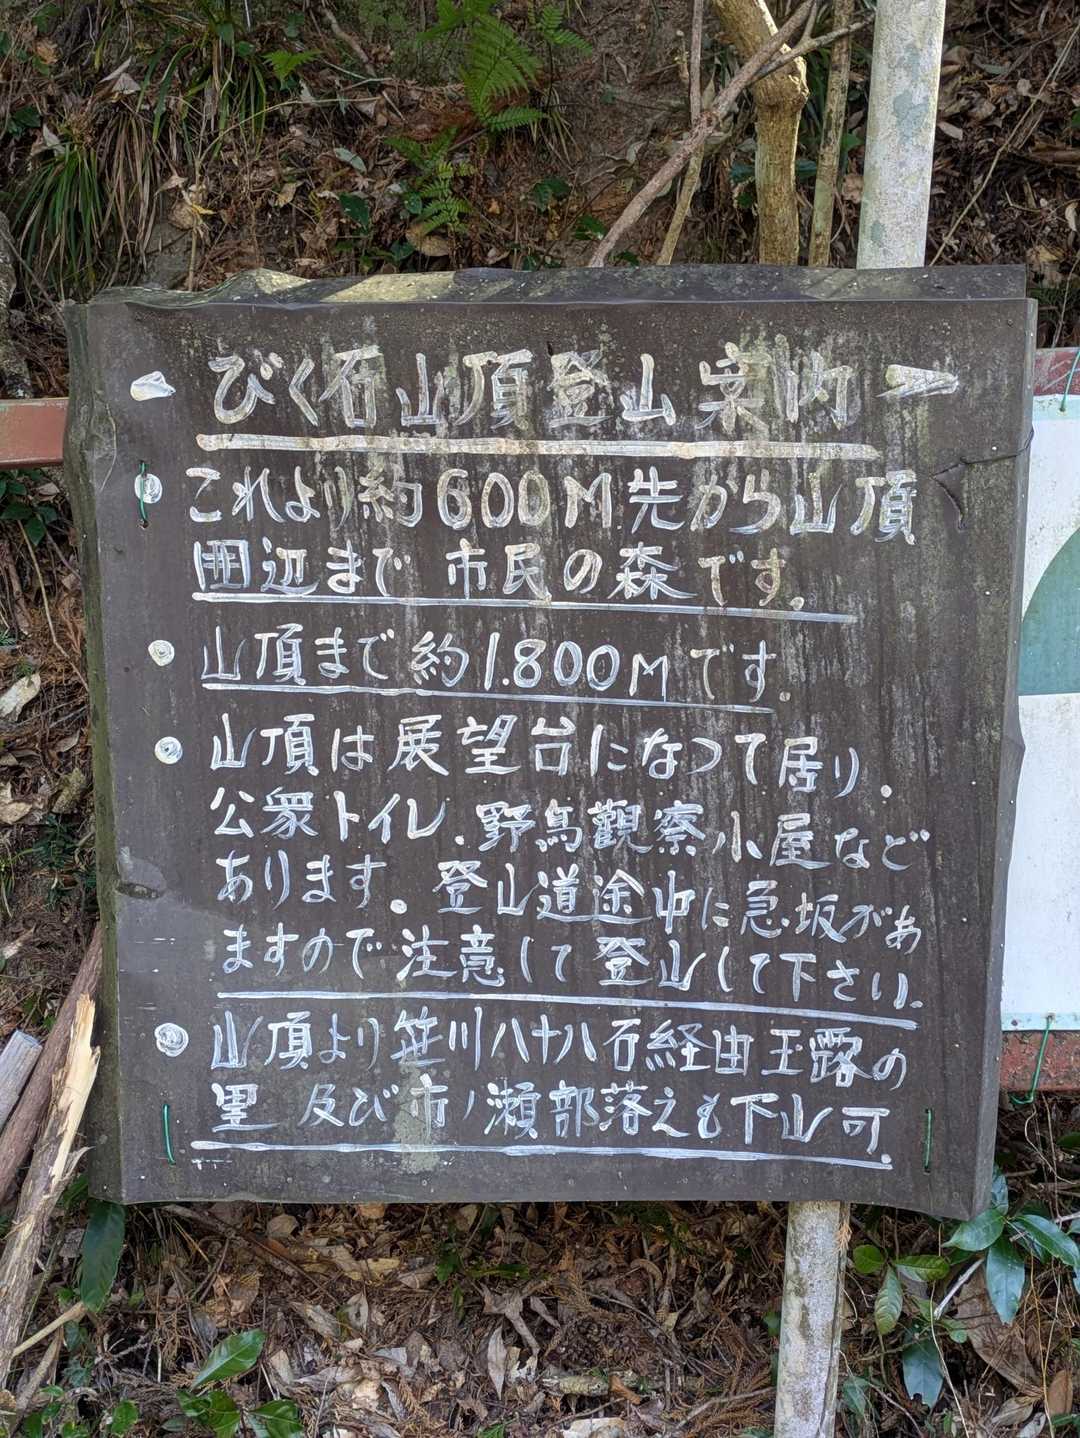 びく石山頂登山案内
これより約600M先から山頂
囲辺まで 市民の森です.
山頂まで約1.800Mです.
山頂は展望台になつて居り.
公衆トイレ.野鳥観察小屋など
あります.登山道途中に急坂があ
ますので注意して登山して下さい.
山頂より笹川八十八石経由玉露の
里 及び市ノ瀬部落えも下山可.